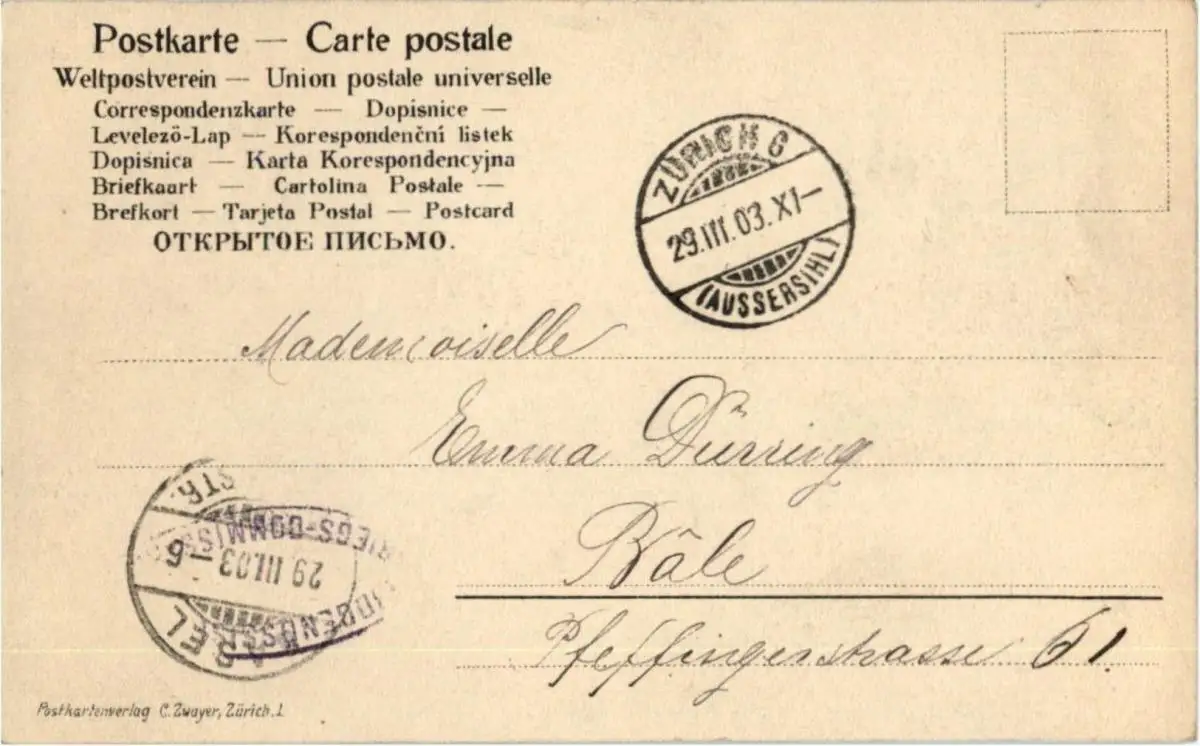 Postkarte — Carte postale
Weltpostverein — Union postale universelle
Correspondenzkarte — Dopisnice —
Levelező-Lap — Korespondenční listek
Dopisnica — Karta Korespondencyjna
Briefkaart — Cartolina Postale —
Brefkort — Tarjeta Postal — Postcard
ОТКРЫТОЕ ПИСЬМО.
ZÜRICH 6
29.III.03.XI—
(AUSSERSIHL)
Mademoiselle
Emma Dürring
Bâle
Pfeffingerstrasse 61.
STR.
RIEGS-COMMISS
29 III.03 – 6
IDGENÖSS
ASEL
Postkartenverlag C. Zwayer, Zürich.I